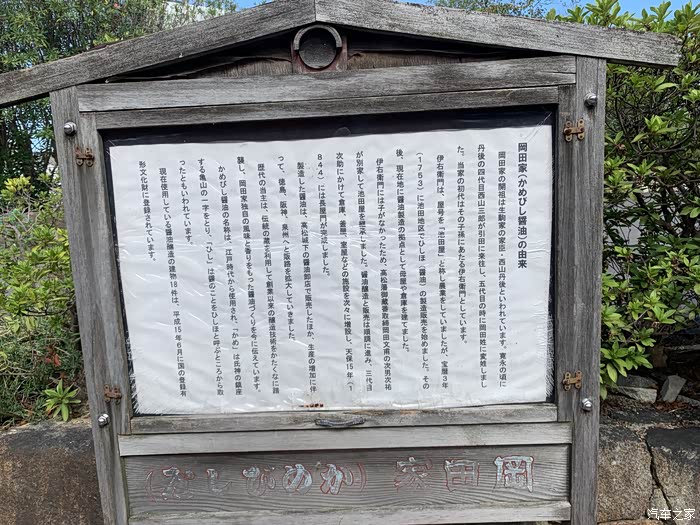 岡田家（かめびし醤油）の由来
岡田家の開祖は生駒家の家臣・西山丹後といわれています。寛永の頃に
丹後の四代目西山三郎が引田に来住し、五代目の時に岡田姓に変姓しまし
た。当家の初代はその子孫にあたる伊右衛門としています。
伊右衛門は、屋号を「池田屋」と称し農業をしていましたが、宝暦３年
（1753）に池田地区でひしほ（醤油）の製造販売を始めました。その
後、現在地に醤油製造の拠点として母屋や倉庫を建てました。
伊右衛門には子がなかったため、高松藩御蔵番取締岡田文甫の次男次祐
が別家して池田屋を継承しました。醤油醸造と販売は順調に進み、三代目
次助にかけて倉庫、釜屋、室屋などの施設を次々に増設し、天保15年（1
844）には長屋門が完成しました。
製造した醤油は、高松城下の醤油卸店で販売したほか、生産の増加に伴
って、徳島、阪神、泉州へと販路を拡大していきました。
歴代の当主は、伝統の蔵を利用して創業以来の醸造技術をかたくなに踏
襲し、岡田家独自の風味と香りをもった醤油づくりを今に伝えています。
かめびし醤油の名称は、江戸時代から使用され、「かめ」は氏神の鎮座
する亀山の一字をとり、「ひし」は醤のことをひしほと呼ぶところから取
ったともいわれています。
現在使用している醤油醸造の建物18件は、平成15年6月に国の登録有
形文化財に登録されています。
岡田家（かめびし屋）
汽车之家